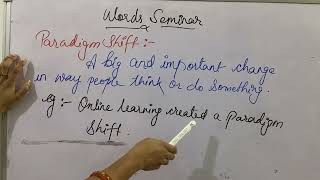 Words Seminar
Paradigm Shift :-
A big and important change
in way people think or do something.
eg :- Online learning created a paradigm
shift.